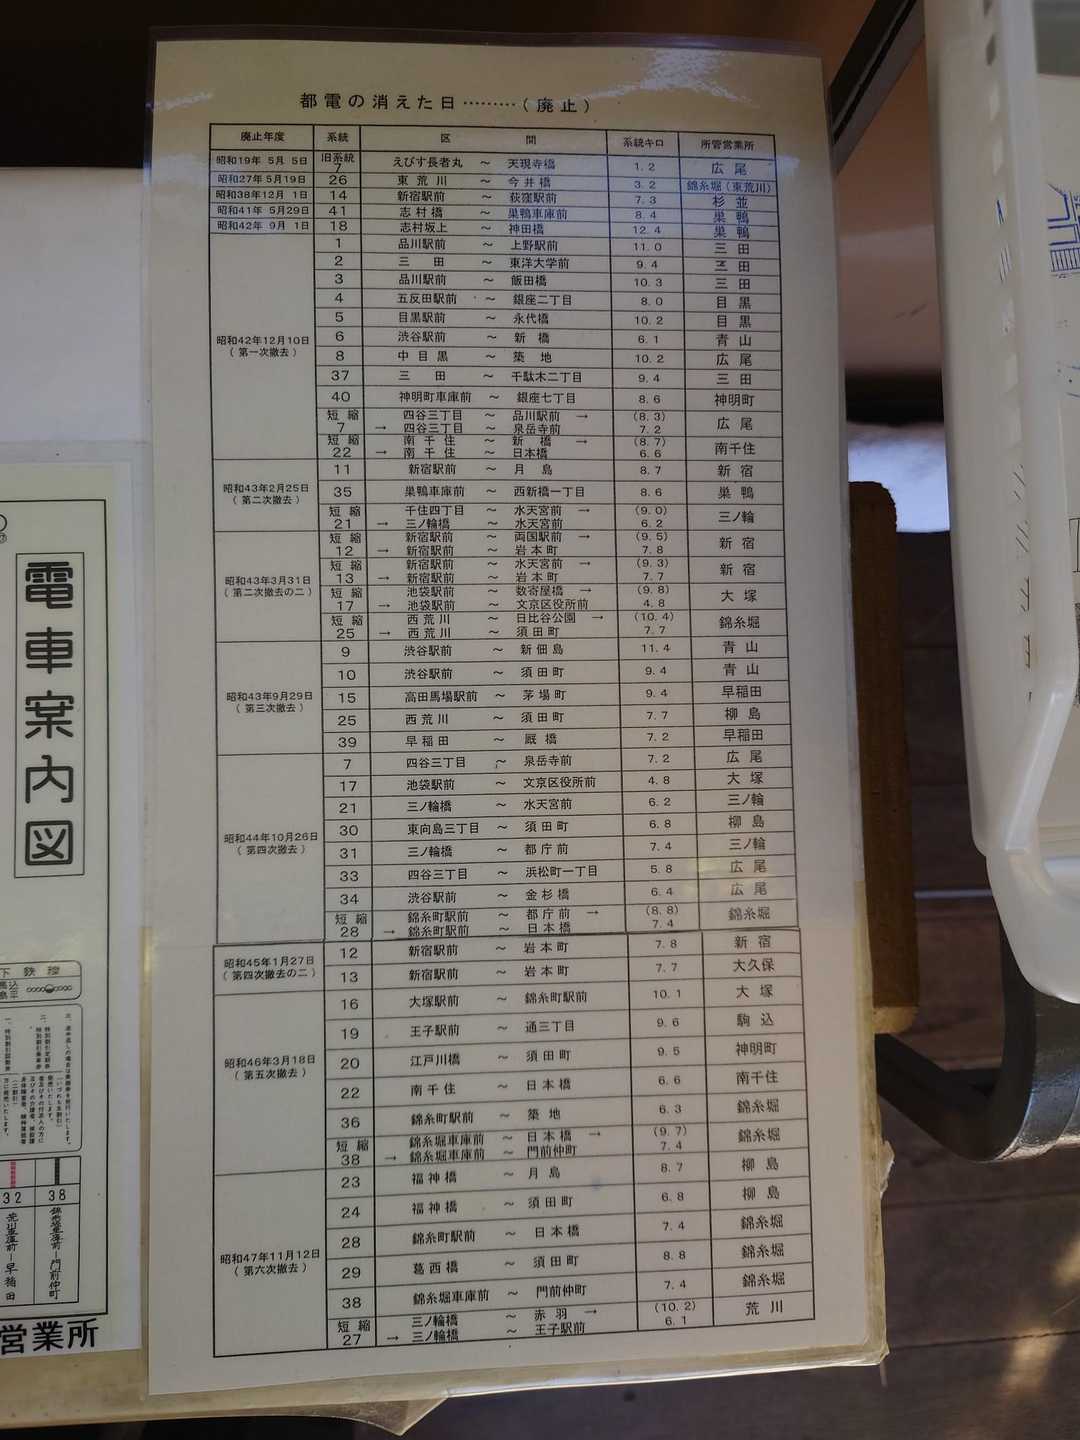 都電の消えた日………(廃止)
廃止年度 系統 区 間 系統キロ 所管営業所
昭和19年 5月 5日 旧系統 7 えびす長者丸 ～ 天現寺橋 1.2 広尾
昭和27年 5月19日 26 東荒川 ～ 今井橋 3.2 錦糸堀(東荒川)
昭和38年12月 1日 14 新宿駅前 ～ 荻窪駅前 7.3 杉並
昭和41年 5月29日 41 志村橋 ～ 巣鴨車庫前 8.4 巣鴨
昭和42年 9月 1日 18 志村坂上 ～ 神田橋 12.4 巣鴨
昭和42年12月10日
(第一次撤去)
1 品川駅前 ～ 上野駅前 11.0 三田
2 三田 ～ 東洋大学前 9.4 三田
3 品川駅前 ～ 飯田橋 10.3 三田
4 五反田駅前 ～ 銀座二丁目 8.0 目黒
5 目黒駅前 ～ 永代橋 10.2 目黒
6 渋谷駅前 ～ 新橋 6.1 青山
8 中目黒 ～ 築地 10.2 広尾
37 三田 ～ 千駄木二丁目 9.4 三田
40 神明町車庫前 ～ 銀座七丁目 8.6 神明町
短縮 四谷三丁目 ～ 品川駅前 → (8.3) 広尾
7 → 四谷三丁目 ～ 泉岳寺前 7.2
短縮 南千住 ～ 新橋 → (8.7) 南千住
22 → 南千住 ～ 日本橋 6.6
昭和43年2月25日
(第二次撤去)
11 新宿駅前 ～ 月島 8.7 新宿
35 巣鴨車庫前 ～ 西新橋一丁目 8.6 巣鴨
短縮 千住四丁目 ～ 水天宮前 → (9.0) 三ノ輪
21 → 三ノ輪橋 ～ 水天宮前 6.2
昭和43年3月31日
(第二次撤去の二)
短縮 新宿駅前 ～ 両国駅前 → (9.5) 新宿
12 → 新宿駅前 ～ 岩本町 7.8
短縮 新宿駅前 ～ 水天宮前 → (9.3) 新宿
13 → 新宿駅前 ～ 岩本町 7.7
短縮 池袋駅前 ～ 数寄屋橋 → (9.8) 大塚
17 → 池袋駅前 ～ 文京区役所前 4.8
短縮 西荒川 ～ 日比谷公園 → (10.4) 錦糸堀
25 → 西荒川 ～ 須田町 7.7
昭和43年9月29日
(第三次撤去)
9 渋谷駅前 ～ 新佃島 11.4 青山
10 渋谷駅前 ～ 須田町 9.4 青山
15 高田馬場駅前 ～ 茅場町 9.4 早稲田
25 西荒川 ～ 須田町 7.7 柳島
39 早稲田 ～ 厩橋 7.2 早稲田
昭和44年10月26日
(第四次撤去)
7 四谷三丁目 ～ 泉岳寺前 7.2 広尾
17 池袋駅前 ～ 文京区役所前 4.8 大塚
21 三ノ輪橋 ～ 水天宮前 6.2 三ノ輪
30 東向島三丁目 ～ 須田町 6.8 柳島
31 三ノ輪橋 ～ 都庁前 7.4 三ノ輪
33 四谷三丁目 ～ 浜松町一丁目 5.8 広尾
34 渋谷駅前 ～ 金杉橋 6.4 広尾
短縮 錦糸町駅前 ～ 都庁前 → (8.8) 錦糸堀
28 → 錦糸町駅前 ～ 日本橋 7.4
昭和45年1月27日
(第四次撤去の二)
12 新宿駅前 ～ 岩本町 7.8 新宿
13 新宿駅前 ～ 岩本町 7.7 大久保
昭和46年3月18日
(第五次撤去)
16 大塚駅前 ～ 錦糸町駅前 10.1 大塚
19 王子駅前 ～ 通三丁目 9.6 駒込
20 江戸川橋 ～ 須田町 9.5 神明町
22 南千住 ～ 日本橋 6.6 南千住
36 錦糸町駅前 ～ 築地 6.3 錦糸堀
短縮 錦糸堀車庫前 ～ 日本橋 → (9.7) 錦糸堀
38 → 錦糸堀車庫前 ～ 門前仲町 7.4
昭和47年11月12日
(第六次撤去)
23 福神橋 ～ 月島 8.7 柳島
24 福神橋 ～ 須田町 6.8 柳島
28 錦糸町駅前 ～ 日本橋 7.4 錦糸堀
29 葛西橋 ～ 須田町 8.8 錦糸堀
38 錦糸堀車庫前 ～ 門前仲町 7.4 錦糸堀
短縮 三ノ輪橋 ～ 赤羽 → (10.2) 荒川
27 → 三ノ輪橋 ～ 王子駅前 6.1
電車案内図
下鉄線
32 38
荒川車庫前ー早稲田
錦糸堀車庫前ー門前仲町
営業所